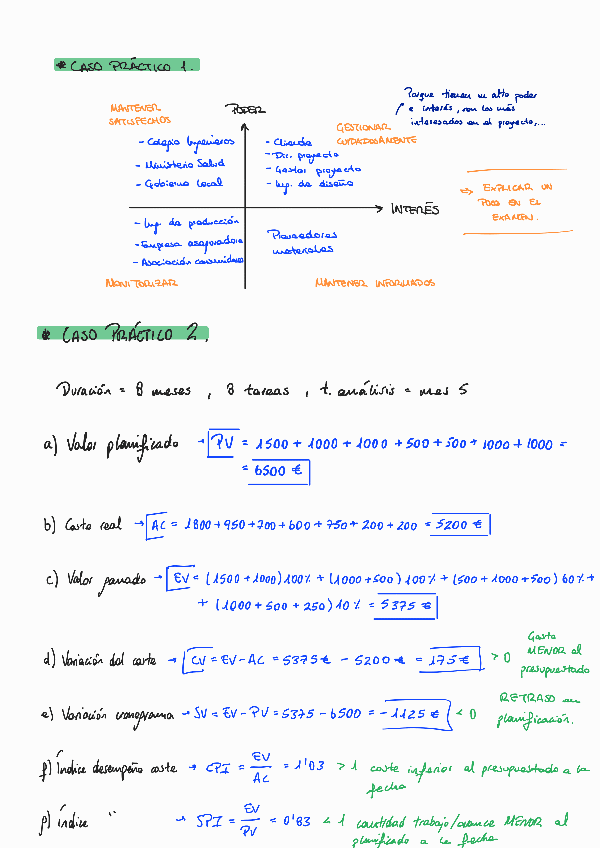 * CASO PRÁCTICO 1.
MANTENER
SATISFECHOS
PODER
Porque tienen un alto poder
e interés, son los más
interesados en el proyecto,...
GESTIONAR
CUIDADOSAMENTE
- Colegio Ingenieros
- Ministerio Salud
- Gobierno Local
- Cliente
- Dir. proyecto
- Gestor proyecto
- Ing. de diseño
INTERÉS
⇒ EXPLICAR UN
POCO EN EL
EXAMEN.
- Ing. de producción
- Empresa aseguradora
- Asociación consumidores
Proveedores
materiales
MONITORIZAR
MANTENER INFORMADOS
* CASO PRÁCTICO 2.
Duración = 8 meses , 8 tareas , t. análisis = mes 5
a) Valor planificado → PV = 1500 + 1000 + 1000 + 500 + 500 + 1000 + 1000 =
= 6500 €
b) Coste real → AC = 1800 + 950 + 700 + 600 + 750 + 200 + 200 = 5200 €
c) Valor ganado → EV = (1500 + 1000) 100% + (1000 + 500) 100% + (500 + 1000 + 500) 60% +
+ (1000 + 500 + 250) 10% = 5375 €
d) Variación del coste → CV = EV - AC = 5375 € - 5200 € = 175 € > 0
Gasto
MENOR al
presupuestado
e) Variación cronograma → SV = EV - PV = 5375 - 6500 = - 1125 € < 0
RETRASO en
planificación.
f) Índice desempeño coste → CPI = EV / AC = 1'03 > 1 coste inferior al presupuestado a la
fecha
g) Índice " → SPI = EV / PV = 0'83 < 1 cantidad trabajo/avance MENOR al
planificado a la fecha